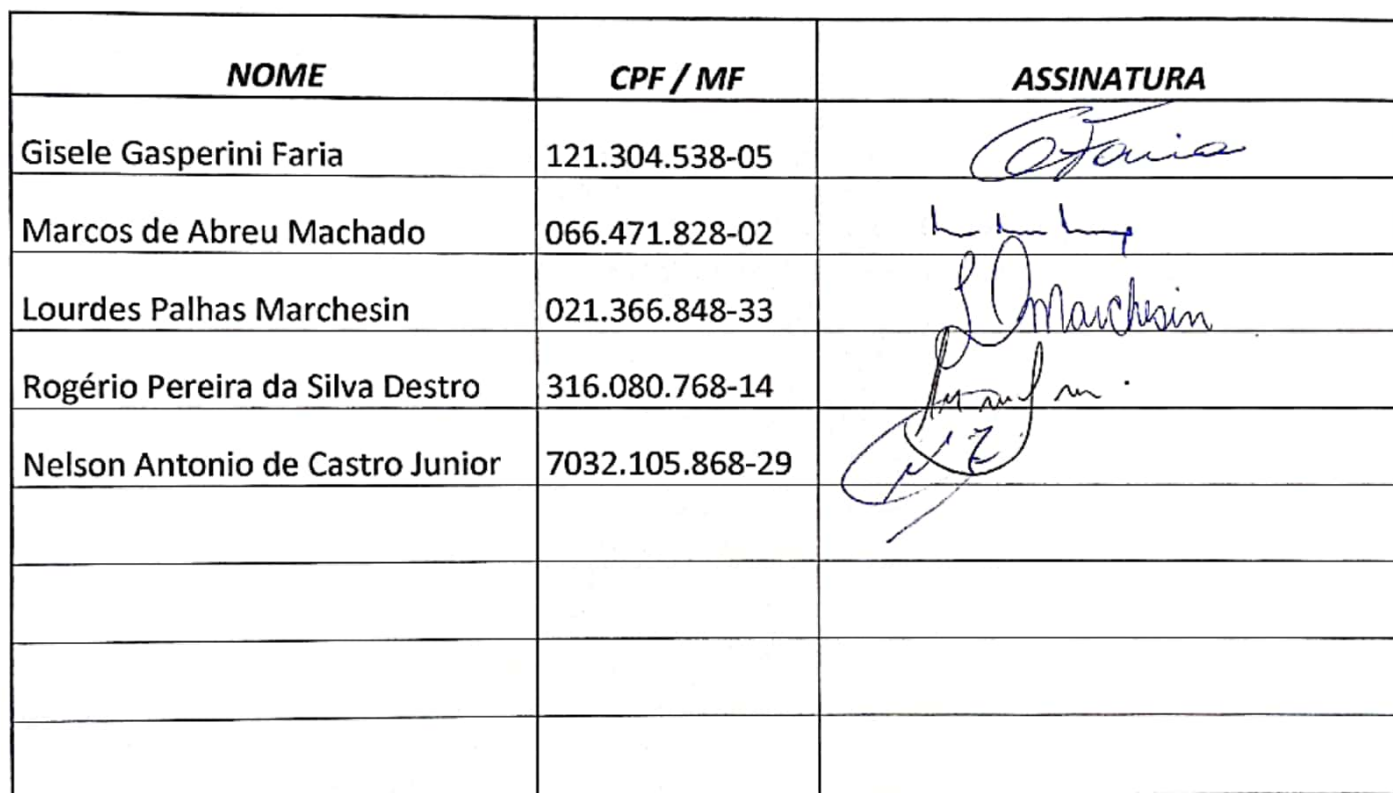 NOME CPF / MF ASSINATURA
Gisele Gasperini Faria 121.304.538-05 GFaria
Marcos de Abreu Machado 066.471.828-02
Lourdes Palhas Marchesin 021.366.848-33 L Marchesin
Rogério Pereira da Silva Destro 316.080.768-14
Nelson Antonio de Castro Junior 7032.105.868-29